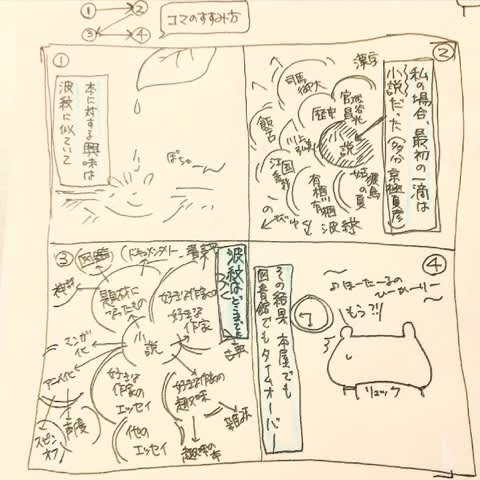 ①→②
③→④
コマのすすみ方
①
本に対する興味は
波紋に似ていて
ぽちゃーん
②
私の場合、最初の一滴は
小説だった(多分 京極夏彦)
小説
漢字
司馬
歴史
飯
川上
江國
香織
有栖
有栖
波紋
③
波紋はどこまでも
図鑑
ドキュメンタリー
題材に
なったもの
好きな作家の
好きな
作家
小説
マンガ
化
アニメ化
声優
スピン
オフ
好きな
作家の
エッセイ
他の
エッセイ
好きな作家の
趣味
趣味の
本
雑誌
古典
④
その結果 本屋でも
図書館でもタイムオーバー
〜♪ほーたーるの
ひーかーりー〜
7
もう?!
リュック